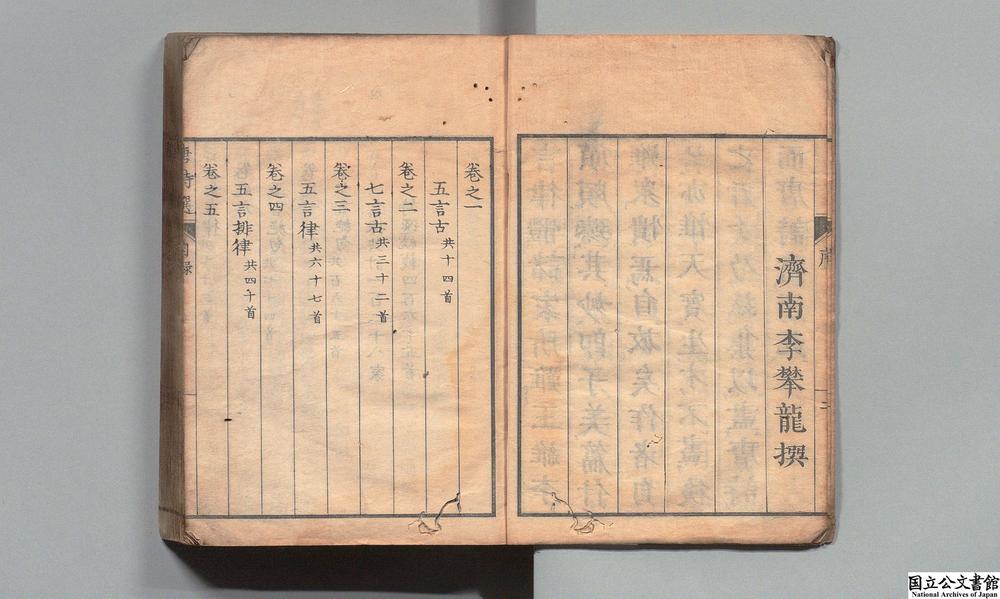 濟南李攀龍撰
卷之一
五言古共十四首
卷之二
七言古共三十二首
卷之三
五言律共六十七首
卷之四
五言排律共四十首
卷之五
唐詩選
目錄
国立公文書館
National Archives of Japan